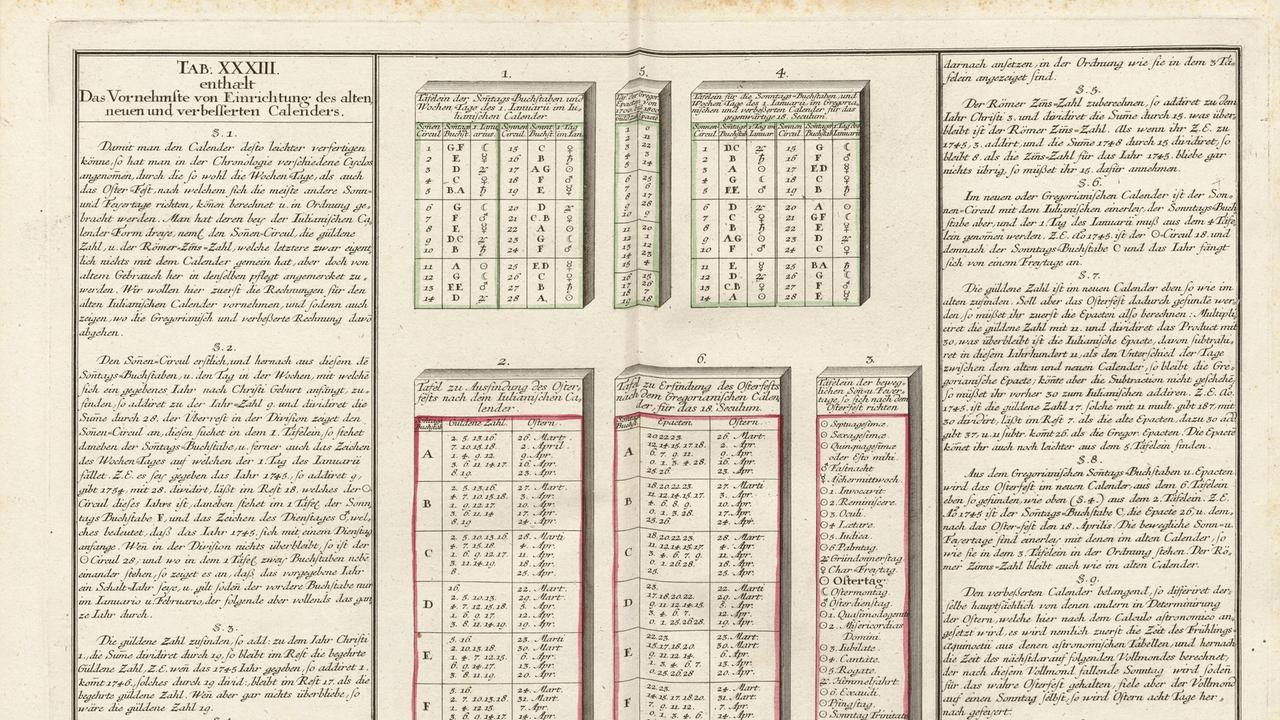 TAB: XXXIII.
enthælt
Das Vornehmste von Einrichtung des alten,
neuen und verbesserten Calenders.
§. 1.
Damit man den Calender desto leichter verfertigen
könne, so hat man in der Chronologie verschiedene Cyclos
angenom̄en, durch die so wohl die Wochen-Tage, als auch
das Oster-Fest, nach welchem sich die meiste andere Sonn-
und Feyertage richten, könen berechnet u. in Ordnung ge-
bracht werden. Man hat deren bey der Iulianischen Ca,
lender-Form dreye, neml. den Soñen-Circul, die güldene
Zahl, u. der Römer-Zins-Zahl, welche letztere zwar eigent,
lich nichts mit dem Calender gemein hat, aber auch von
altem Gebrauch her in denselben pflegt angemercket zu,
werden. Wir wollen hier zuerst die Rechnungen für den
alten Iulianischen Calender vornehmen, und sodenn auch
zeigen, wo die Gregorianisch und verbeßerte Rechnung davō
abgehen.
§. 2.
Den Soñen-Circul erstlich, und hernach aus diesem dē
Soñtags-Buchstaben, u. den Tag in der Wochen, mit welchē
sich ein gegebenes Iahr nach Christi Geburt anfängt, zu,
finden, so addiret zu der Iahr-Zahl 9. und dividiret die
Sum̄e durch 28. der Überrest in der Division zeiget den
Soñen-Circul an, diesen suchet in dem 1. Täfelein, so stehet
daneben der Soñtags-Buchstabe, u. ferner auch das Zeichen
des Wochen-Tages auf welchen der 1 Tag des Ianuarii
fället. Z.E. es sey gegeben das Iahr 1745. so addiret 9,
gibt 1754. mit 28. dividirt, läßt im Rest 18. welches der ☉
Circul dieses Iahrs ist, daneben stehet im 1 Täfel. der Sonn
tags Buchstabe F, und das Zeichen des Dienstages ♂, wel,
ches bedeutet, daß das Iahr 1745. sich mit einem Dienstag
anfange. Weñ in der Division nichts überbleibt, so ist der
☉ Circul 28, und wo in dem 1 Täfel. zwey Buchstaben nebē
einander stehen, so zeiget es an, daß das vorgegebene Iahr
ein Schalt-Iahr seye, u. gilt sodeñ der vordere Buchstabe nur
im Ianuario u. Februario, der folgende aber vollends das gan
ze Iahr durch.
§. 3.
Die güldene Zahl zufinden, so add. zu dem Iahr Christi
1., die Sum̄e dividirt durch 19, so bleibt im Rest die begehrte
Güldene Zahl, Z.E. weñ das 1745 Iahr gegeben, so addiret 1.
komt 1746, solches durch 19 divid., bleibt im Rest 17. als die
begehrte güldene Zahl. Weñ aber gar nichts überbliebe, so
wäre die güldene Zahl 19.
1.
Täfelein der Soñtags-Buchstaben, und
Wochen Tage des 1. Ianuarii im Iu-
lianischen Calender.
Soñen Circul Soñtags Buchst. 1. Ianuarius Soñen Circul Soñt. Buchst. 1 Tag im Ian.
1 G.F ☾ 15 C ♀
2 E ☿ 16 B ♄
3 D ♃ 17 A G ☉
4 C ♀ 18 F ♂
5 B.A ♄ 19 E ☿
6 G ☾ 20 D ♃
7 F ♂ 21 C.B ♀
8 E ☿ 22 A ☉
9 D.C ♃ 23 G ☾
10 B ♄ 24 F ♂
11 A ☉ 25 E.D ☿
12 G ☾ 26 C ♀
13 F.E ♂ 27 B ♄
14 D ♃ 28 A ☉
5.
1 0
4 3
5 14
6 25
7 6
9 28
10 9
11 20
12 1
13 12
14 23
15 4
16 15
17 26
18 7
19 18
4.
Täfelein für die Sonntags-Buchstaben und
Wochen-Tage des 1. Ianuarii, im Gregoria,
nischen und verbeßerten Calender, für das
gegenwärtige 18. Seculum.
1 D.C ♃ 15 G ☾
2 B ♄ 16 F ♂
3 A ☉ 17 E.D ☿
4 G ☾ 18 C ♀
5 F.E ♂ 19 B ♄
6 D ♃ 20 A ☉
7 C ♀ 21 G.F ☾
8 B ♄ 22 E ☿
9 A.G ☉ 23 D ♃
10 F ♂ 24 C ♀
11 E ☿ 25 B.A ♄
12 D ♃ 26 G ☾
13 C.B ♀ 27 F ♂
14 A ☉ 28 E ☿
2.
Tafel zu Ausfindung des Oster-
fests nach dem Iulianischen Ca,
lender.
Güldene Zahl. Ostern.
A
2. 5. 13. 16. 26. Mart.
7. 10. 15. 18. 2. April.
1. 4. 9. 12. 9. Apr.
3. 6. 11. 14. 17. 16. Apr.
8. 19. 23. Apr.
B
2. 5. 13. 16. 27. Marti
4. 7. 10. 15. 18. 3. Apr.
1. 9. 12. 17. 10. Apr.
3. 6. 11. 14. 17. Apr.
8. 19. 24. Apr.
C
2. 5. 10. 13. 16. 28. Marti
4. 7. 15. 18. 4. Apr.
1. 6. 9. 12. 17. 11. Apr.
3. 11. 14. 19. 18. Apr.
8. 25. Apr.
D
16. 22. Mart.
2. 5. 10. 13. 29. Marti
4. 7. 12. 15. 18. 5. Apr.
1. 6. 9. 17. 12. Apr.
3. 8. 11. 14. 19. 19. Apr.
E
5. 16. 23. Marti
2. 10. 13. 18. 30. Mart.
1. 4. 7. 12. 15. 6. Apr.
6. 9. 14. 17. 13. Apr.
3. 8. 11. 19. 20. Apr.
F
5. 16. 24. Mart.
2. 7. 10. 13. 18. 31. Mart.
1. 4. 12. 15. 7. Apr.
3. 6. 9. 14. 17. 14. Apr.
6.
Tafel zu Erfindung des Osterfests
nach dem Gregorianischen Calen
der, für das 18. Seculum.
Epacten. Ostern.
A
20. 22. 23. 26. Mart.
12. 14. 15. 17. 18. 2. Apr.
6. 7. 9. 11. 9. Apr.
0. 1. 3. 4. 28. 16. Apr.
25. 26. 23. Apr.
B
18. 20. 22. 23. 27. Marti
11. 12. 14. 15. 17. 3. Apr.
4. 6. 7. 9. 10. Apr.
0. 1. 3. 28. 17. Apr.
25. 26. 24. Apr.
C
18. 20. 22. 23. 28. Mart.
11. 12. 14. 15. 17. 4. Apr.
3. 4. 6. 7. 9. 11. Apr.
0. 1. 26. 28. 18. Apr.
25. 25. Apr.
D
23. 22. Marti
17. 18. 20. 22. 29. Mart.
9. 11. 12. 14. 15. 5. Apr.
3. 4. 6. 7. 12. Apr.
0. 1. 25. 26. 28. 19. Apr.
E
22. 23. 23. Mart.
15. 17. 18. 20. 30. Mart.
9. 11. 12. 14. 6. Apr.
1. 3. 4. 6. 7. 13. Apr.
0. 25. 26. 28. 20. Apr.
F
22. 23. 24. Mart.
14. 15. 17. 18. 20. 31. Mart.
7. 9. 11. 12. 7. Apr.
0. 1. 3. 4. 6. 14. Apr.
3.
Täfelein der beweg-
lichen Soñ u. Feyer-
tage, so sich nach dem
Osterfest richten
☉ Septuagesimæ.
☉ Sexagesimæ.
☉ Quinquagesimæ
oder Esto mihi.
♂ Fastnacht
☿ Aschermittwoch.
☉ 1. Invocavit.
☉ 2. Reminiscere.
☉ 3. Oculi.
☉ 4. Lætare.
☉ 5. Iudica.
☉ 6. Palmtag.
♃ Gründonnerstag
♀ Char-Freytag.
☉ Ostertag.
☾ Ostermontag
♂ Osterdienstag
☉ 1. Quasimodogeniti
☉ 2. Misericordias
Domini.
☉ 3. Iubilate.
☉ 4. Cantate.
☉ 5. Rogate.
♃ Him̄melfahrt.
☉ 6. Exaudi.
☉ Pfingstag.
☉ Sonntag Trinitat.
darnach ansetzen, in der Ordnung wie sie in dem 3 Tä-
felein angezeiget sind.
§. 5.
Der Römer Zinß-Zahl zuberechnen, so addiret zu dem
Iahr Christi 3. und dividiret die Sum̄e durch 15. was über,
bleibt ist der Römer Zinß-Zahl. Als wenn ihr Z.E. zu
1745, 3. addirt, und die Sum̄e 1748 durch 15 dividiret, so
bleibt 8. als die Zinß-Zahl für das Iahr 1745. bliebe gar
nichts übrig, so müßet ihr 15. dafür annehmen.
§. 6.
Im neuen oder Gregorianischen Calender ist der Son-
nen-Circul mit dem Iulianischen einerley, der Soñtags-Buch
stabe aber, und der 1. Tag des Ianuarii muß aus dem 4 Täfe,
lein genom̄en werden. Z.E. Aō. 1745. ist der ☉-Circul 18. und
demnach der Sonntags-Buchstabe C und das Iahr fängt
sich von einem Freytag an.
§. 7.
Die güldene Zahl ist im neuen Calender eben so wie im
alten zufinden. Soll aber das Osterfest dadurch gefunde wer,
den, so müßet ihr zuerst die Epacten also berechnen: Multipli
ciret die güldene Zahl mit 11. und dividiret das Product mit
30, was überbleibt ist die Iulianische Epacte, davon subtrahi,
ret in diesem Iahrhundert 11, als den Unterschied der Tage
zwischen dem alten und neuen Calender, so bleibt die Gre-
gorianische Epacte; könte aber die Subtraction nicht geschehē,
so müßet ihr vorher 30 zum Iulianischen addiren. Z.E. Aō.
1745. ist die güldne Zahl 17. solche mit 11 mult. gibt 187. mit
30 dividirt, läßt im Rest 7. als die alte Epacte, dazu 30 add
gibt 37. u. 11 subtr. komt 26. als die Gregor. Epacten. Die Epacte
könet ihr auch noch leichter aus dem 5. Täfelein finden.
§. 8.
Aus dem Gregorianischen Soñtags-Buchstaben u. Epacten
wird das Osterfest im neuen Calender, aus dem 6 Täfelein
eben so gefunden, wie oben (§. 4.) aus dem 2. Täfelein. Z.E.
Aō 1745 ist der Soñtags-Buchstabe C, die Epacte 26, u. dem,
nach das Oster-fest den 18. Aprilis. Die bewegliche Sonn-u.
Feyertage sind einerley mit denen im alten Calender, so
wie sie in dem 3. Täfelein in der Ordnung stehen. Der Rö,
mer Zinns-Zahl bleibt auch wie im alten Calender.
§. 9.
Den verbeßerten Calender belangend, so differiret der-
selbe hauptsächlich von denen andern in Determinirung
der Ostern, welche hier nach dem Calculo astronomico an-
gesetzt wird, es wird nemlich zuerst die Zeit des Frühlings-
Æquinoctii aus denen astronomischen Tabellen, und hernach
die Zeit des nächstdarauf folgenden Vollmondes berechnet,
der nach diesem Vollmond fallende Sonntag wird sodeñ
für das wahre Osterfest gehalten, fiele aber der Vollmond
auf einen Sonntag selbst, so wird Ostern acht Tage her,
nach gefeyert.